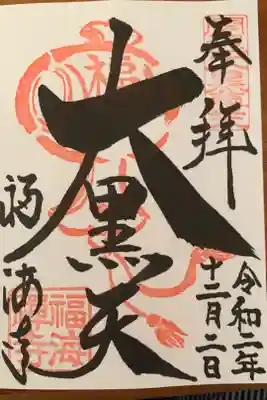 奉拝
大黒天
令和二年
十二月二日
福海寺
福海
禅寺